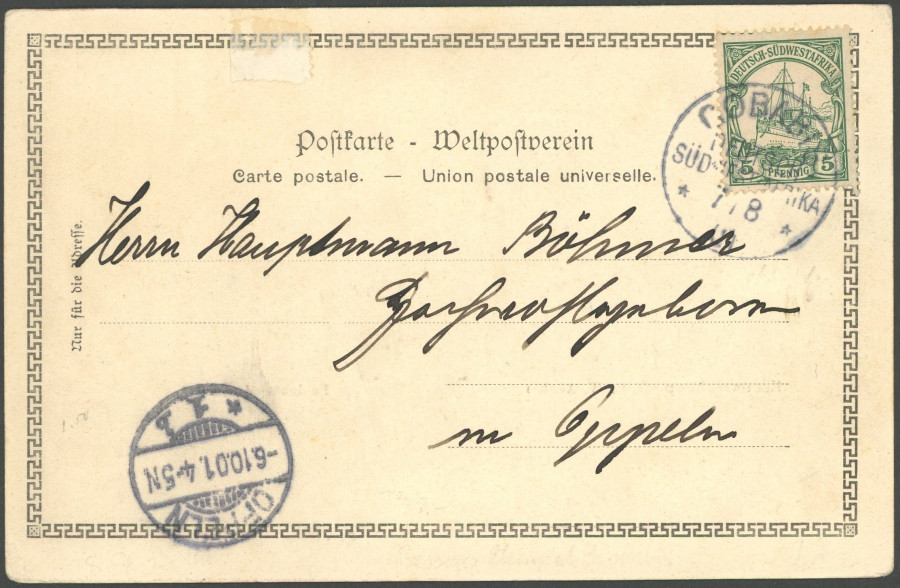 DEUTSCH-SÜDWESTAFRIKA
5 PFENNIG 5
GOBABIS
SÜD-WESTAFRIKA
7/8
Postkarte - Weltpostverein
Carte postale. — Union postale universelle.
Nur für die Adresse.
Herrn Hauptmann Böhmer
Hochwohlgeboren
in Oppeln
OPPELN
-6.10.01.4-5N
* 1 z